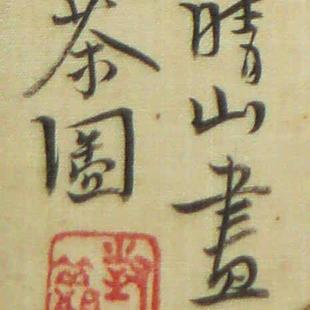 晴山畫
茶圖